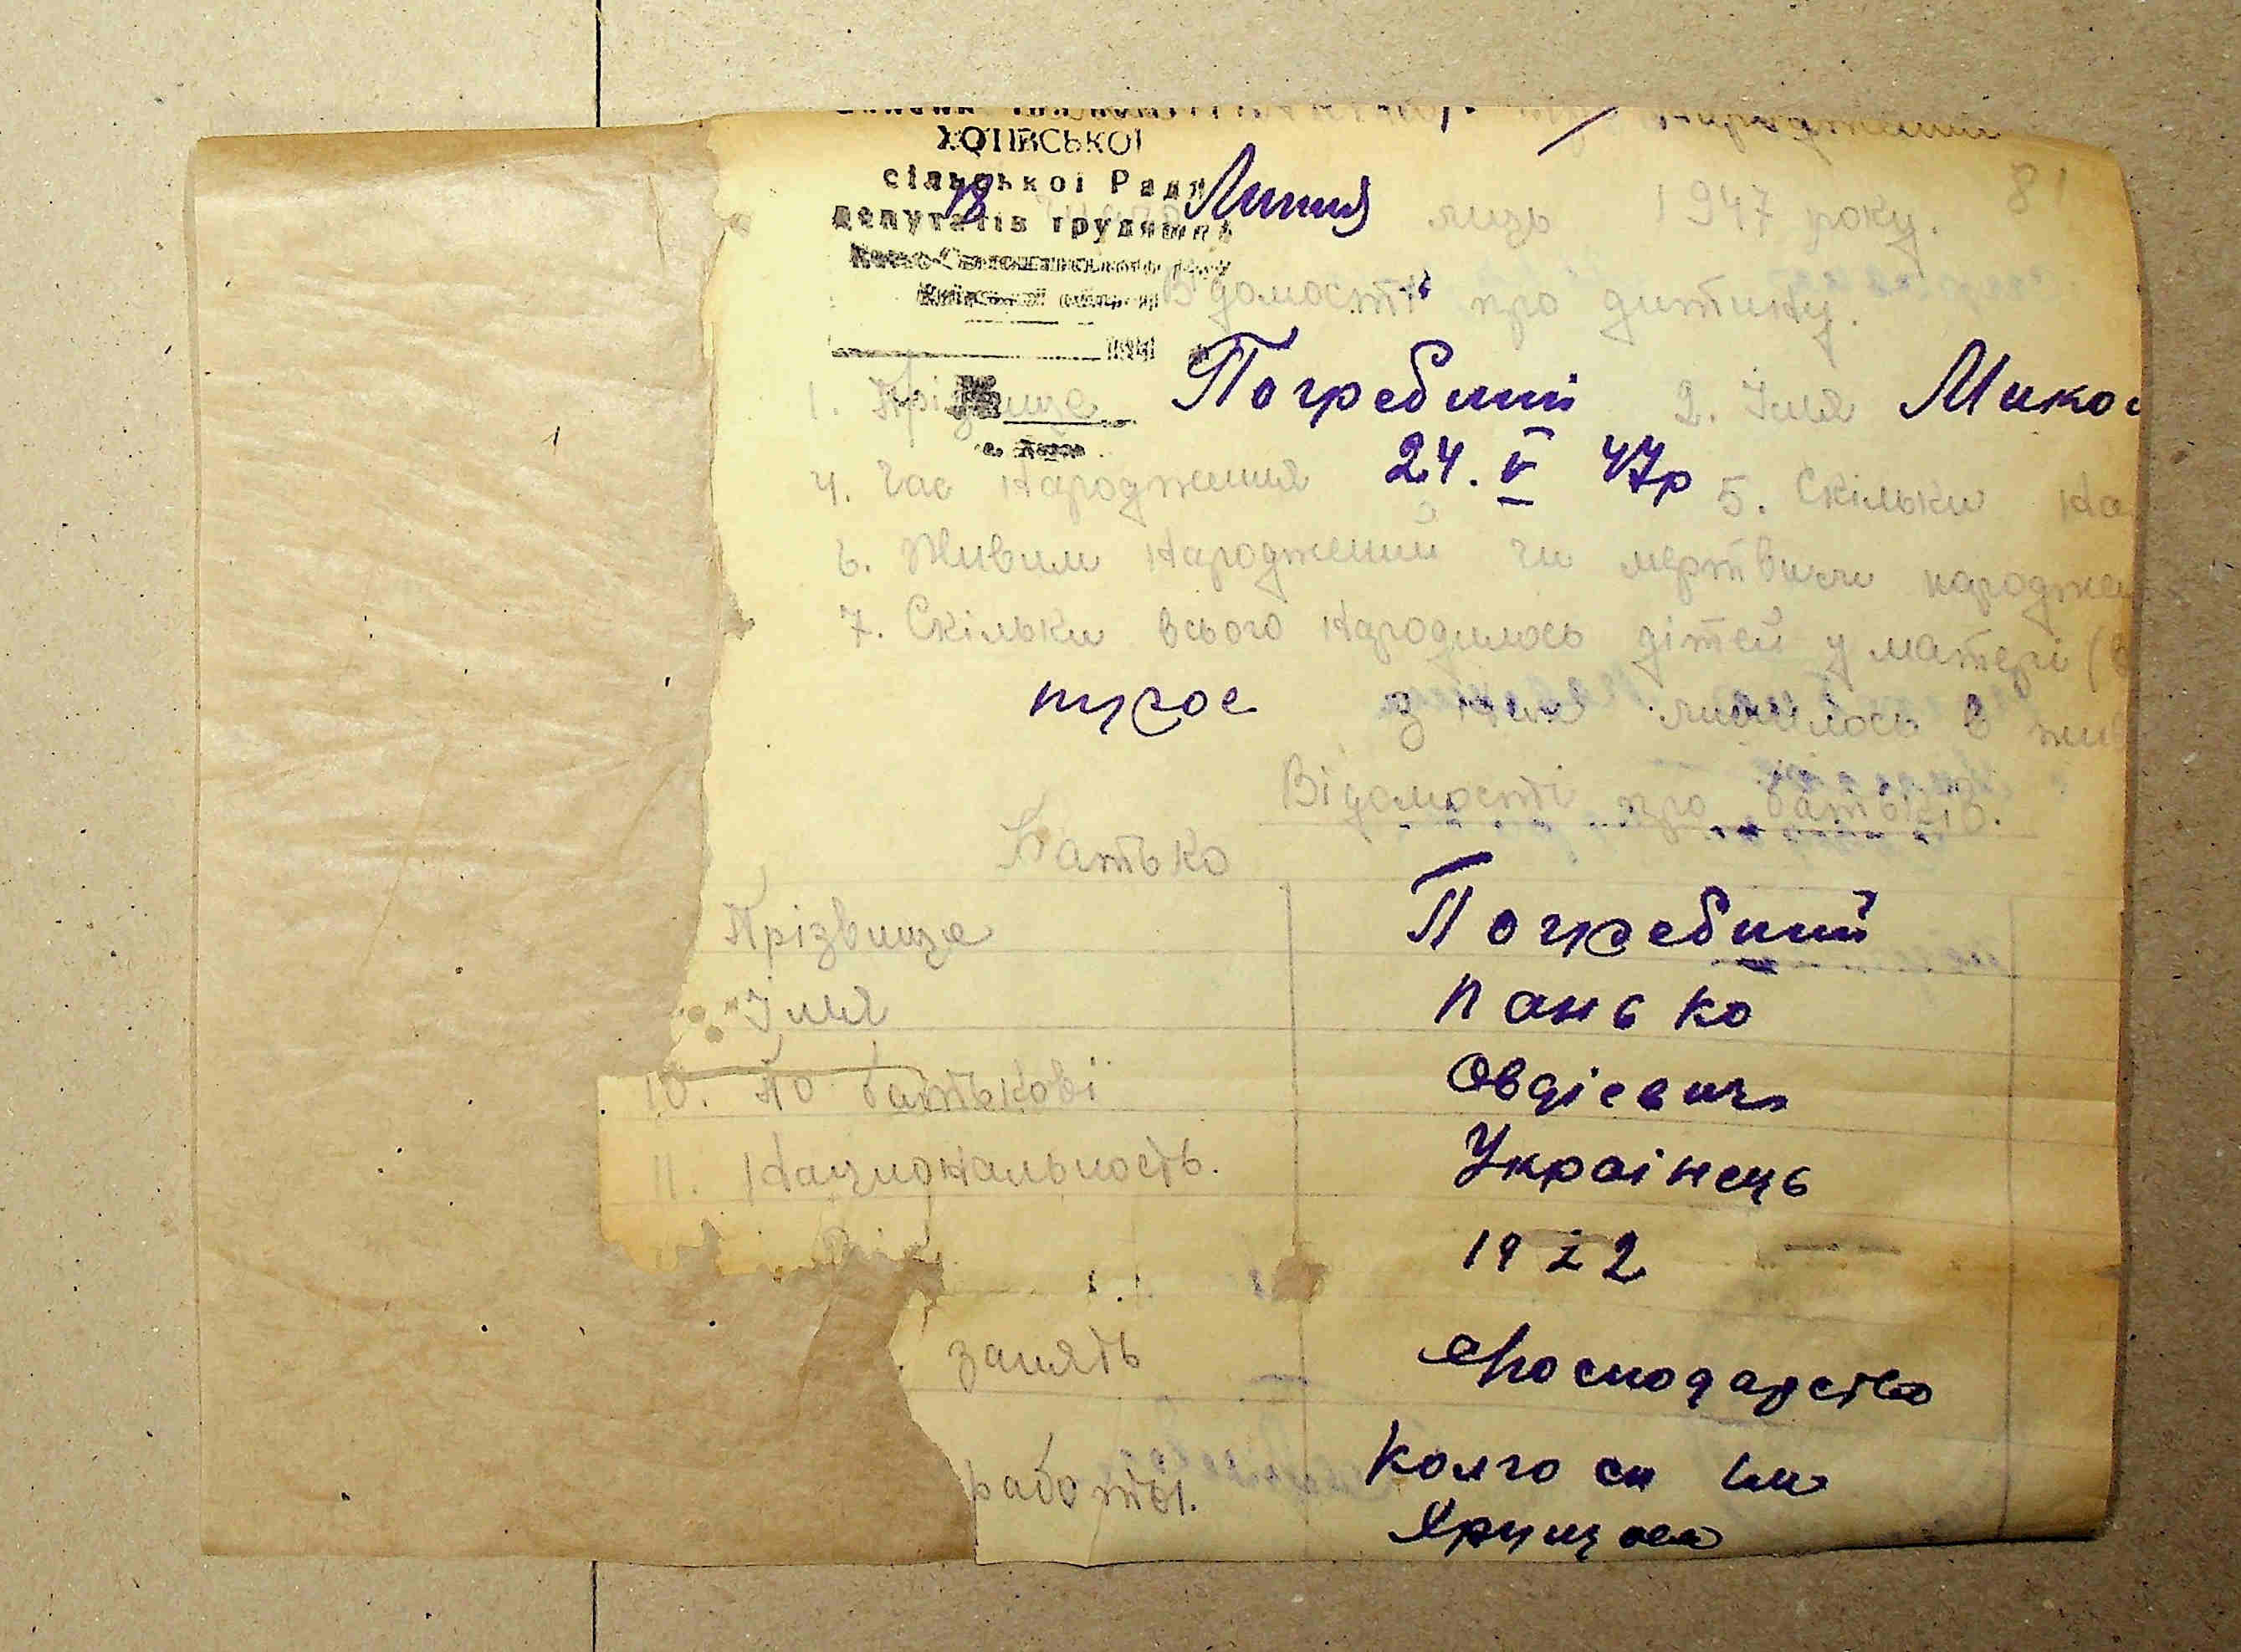 народження
ХОТІВСЬКОЇ
81
сільської Ради
18 Липня місяць 1947 року.
депутатів трудящих
Відомості про дитину.
1. Прізвище Погребний 2. Імя Мико
4. Час народження 24. V 47р 5. Скільки на
6. Живим народжений чи мертвим народже
7. Скільки всього народилось дітей у матері (в
з них лишилось в жи
Відомості про батьків.
Батько
Прізвище Погребний
Імя Панько
10. По батькові Овдієвич
11. Національность. Украінець
1922
занять господарство
работы. Колгосп Ім
Хрущова